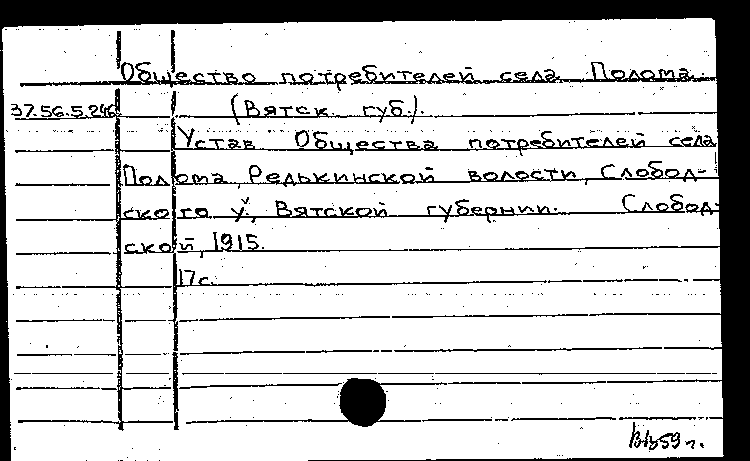 Общество потребителей села Полома
37.56.5.246 (Вятск. губ.).
Устав Общества потребителей села
Полома, Редькинской волости, Слобод-
ского у., Вятской губернии. Слобод-
ской, 1915.
17 с.